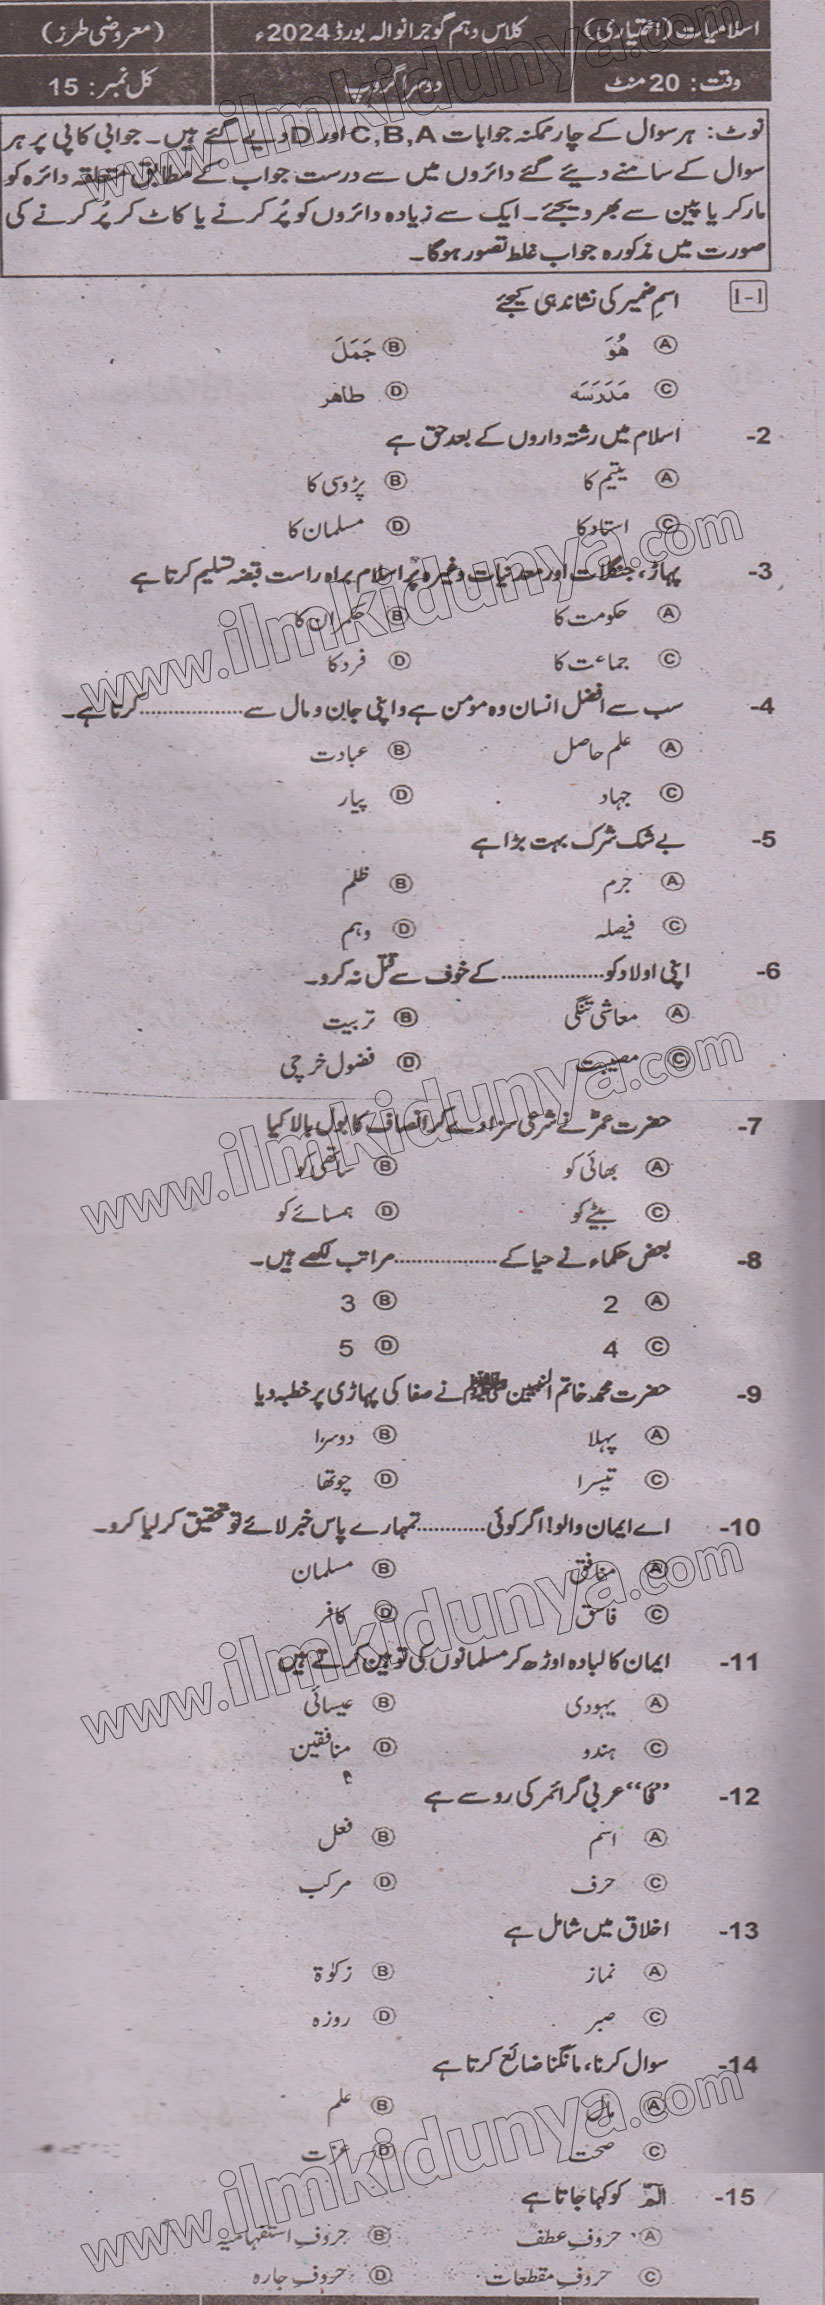 اسلامیات (اختیاری) کلاس دہم گوجرانوالہ بورڈ 2024ء (معروضی طرز)
وقت: 20 منٹ دوسرا گروپ کل نمبر: 15
نوٹ: ہر سوال کے چار ممکنہ جوابات C,B,A اور D دیے گئے ہیں۔ جوابی کاپی پر ہر
سوال کے سامنے دیئے گئے دائروں میں سے درست جواب کے مطابق متعلقہ دائرہ کو
مارکر یا پین سے بھر دیجئے۔ ایک سے زیادہ دائروں کو پُر کرنے یا کاٹ کر پُر کرنے کی
صورت میں مذکورہ جواب غلط تصور ہوگا۔
1-1 اسمِ ضمیر کی نشاندہی کیجئے
A هُوَ B جَمَلَ
C مَدَرَسَه D طاهر
2- اسلام میں رشتہ داروں کے بعد حق ہے
A یتیم کا B پڑوسی کا
C استاد کا D مسلمان کا
3- پہاڑ، جنگلات اور معدنیات وغیرہ پر اسلام براہ راست قبضہ تسلیم کرتا ہے
A حکومت کا B حکمران کا
C جماعت کا D فرد کا
4- سب سے افضل انسان وہ مومن ہے و اپنی جان و مال سے .................. کرتا ہے۔
A علم حاصل B عبادت
C جہاد D پیار
5- بے شک شرک بہت بڑا ہے
A جرم B ظلم
C فیصلہ D وہم
6- اپنی اولاد کو .................. کے خوف سے قتل نہ کرو۔
A معاشی تنگی B تربیت
C مصیبت D فضول خرچی
7- حضرت عمرؓ نے شرعی سزا دے کر انصاف کا بول بالا کیا
A بھائی کو B ساتھی کو
C بیٹے کو D ہمسائے کو
8- بعض حکماء نے حیا کے .................. مراتب لکھے ہیں۔
A 2 B 3
C 4 D 5
9- حضرت محمد خاتم النبیین ﷺ نے صفا کی پہاڑی پر خطبہ دیا
A پہلا B دوسرا
C تیسرا D چوتھا
10- اے ایمان والو! اگر کوئی ............ تمہارے پاس خبر لائے تو تحقیق کر لیا کرو۔
A منافق B مسلمان
C فاسق D کافر
11- ایمان کا لبادہ اوڑھ کر مسلمانوں کی توہین کرتے ہیں
A یہودی B عیسائی
C ہندو D منافقین
12- عربی گرائمر کی رو سے ہے
A اسم B فعل
C حرف D مرکب
13- اخلاق میں شامل ہے
A نماز B زکوٰۃ
C صبر D روزہ
14- سوال کرنا، مانگنا ضائع کرتا ہے
A مال B علم
C صحت D عزت
15- الٓمّٓ کو کہا جاتا ہے
A حروفِ عطف B حروفِ استفہامیہ
C حروفِ مقطعات D حروفِ جارہ
www.ilmkidunya.com
www.ilmkidunya.com
www.ilmkidunya.com
www.ilmkidunya.com
www.ilmkidunya.com